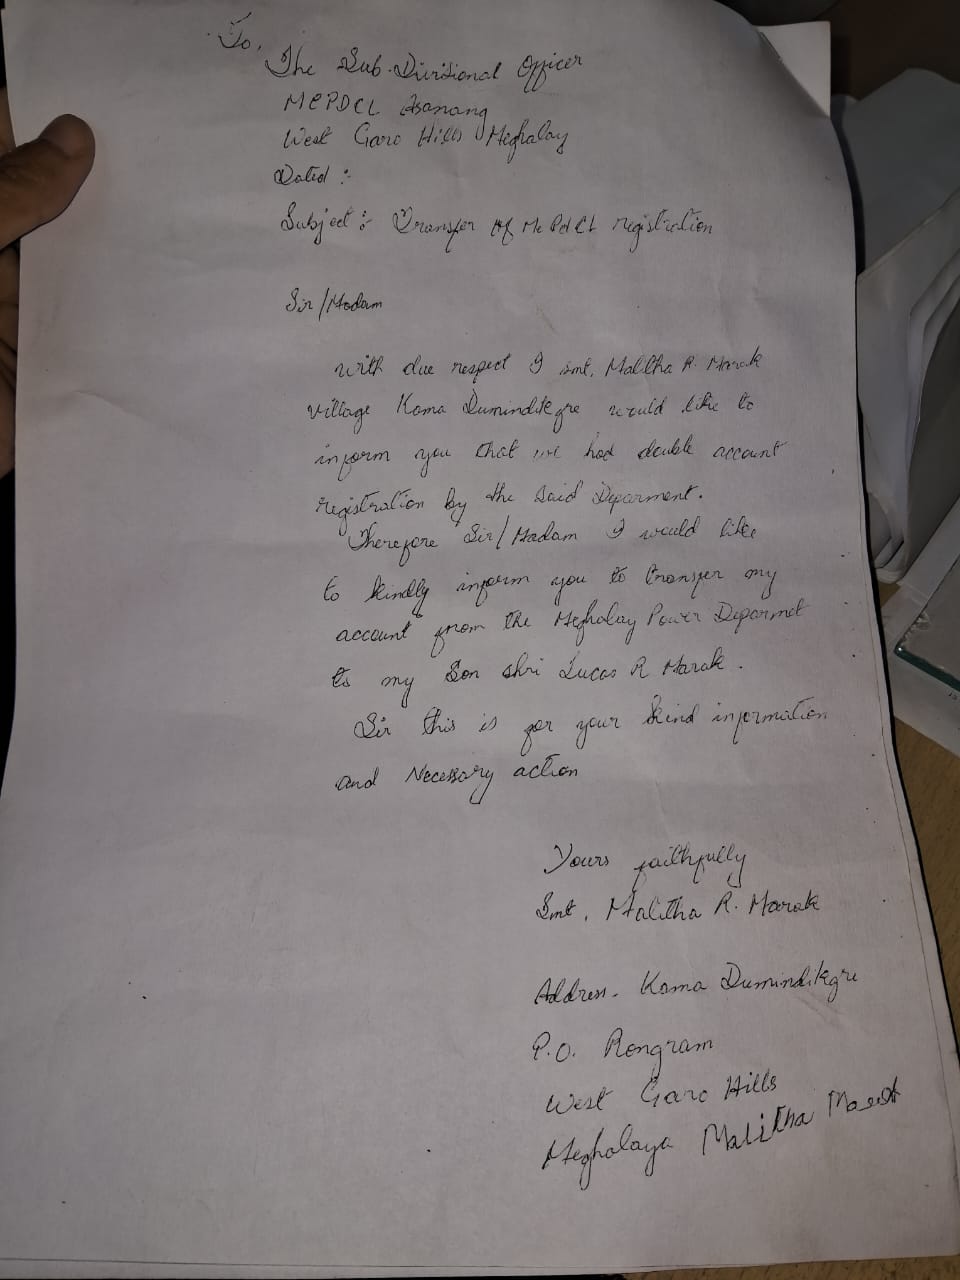 To,
The Sub-Divisional Officer
MEPDCL Asanang
West Garo Hills Meghalay
Dated :
Subject :- Transfer of MePdCL registration
Sir/Madam
with due respect I smt, Malitha R. Marak
village Kama Dumindikgre would like to
inform you that we had double account
registration by the said Deparment.
Therefore Sir/Madam I would like
to kindly inform you to transfer my
account from the Meghalay Power Deparmet
to my Son shri Lucas R Marak.
Sir this is for your kind information
and Necessary action
Yours faithfully
Smt, Malitha R. Marak
Address. Kama Dumindikgre
P.O. Rongram
West Garo Hills
Meghalaya Malitha Marak